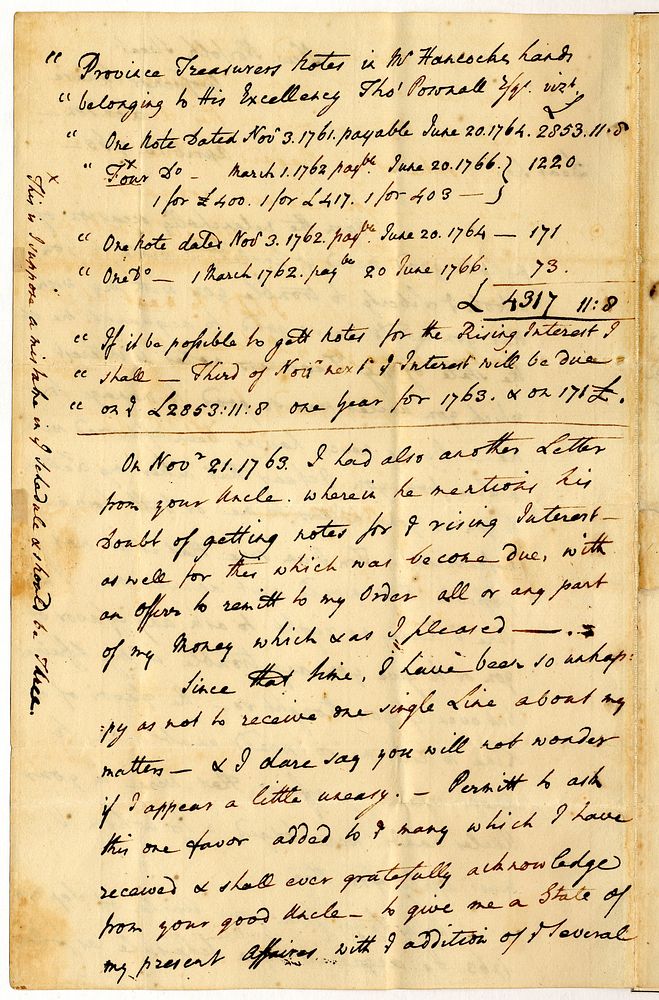 " Province Treasurers Notes in Mr Hancocks hands
" belonging to His Excellency Tho' Pownall Esqr. vizt.
£
" One Note Dated Novr 3. 1761. payable June 20. 1764. 2853.11.8
" Four x Do - March 1. 1762 payble. June 20. 1766. } 1220
1 for £400. 1 for £417. 1 for 403 — }
" One Note dated Novr 3. 1762. payble. June 20. 1764 — 171
" One Do — 1 March 1762. payble 20 June 1766. 73.
£ 4317 11:8
" If it be possible to gett Notes for the Rising Interest I
" shall — Third of Novr next ye Interest will be due
" on ye £2853:11:8 one year for 1763. & on 171£.
On Novr 21. 1763. I had also another Letter
from your Uncle. wherein he mentions his
Doubt of getting notes for ye rising Interest —
as well for this which was become due, with
an offer to remitt to my Order all or any part
of my Money which & as I pleased —
Since that time, I have been so unhap:
:py as not to receive one single Line about my
matters — & I dare say you will not wonder
if I appear a little uneasy. — Permitt to ask
this one favor added to ye many which I have
received & shall ever gratefully acknowledge
from your good Uncle — to give me a State of
my present Affaires with ye addition of ye Several
x This is I suppose a mistake in ye Schedule & should be Three.